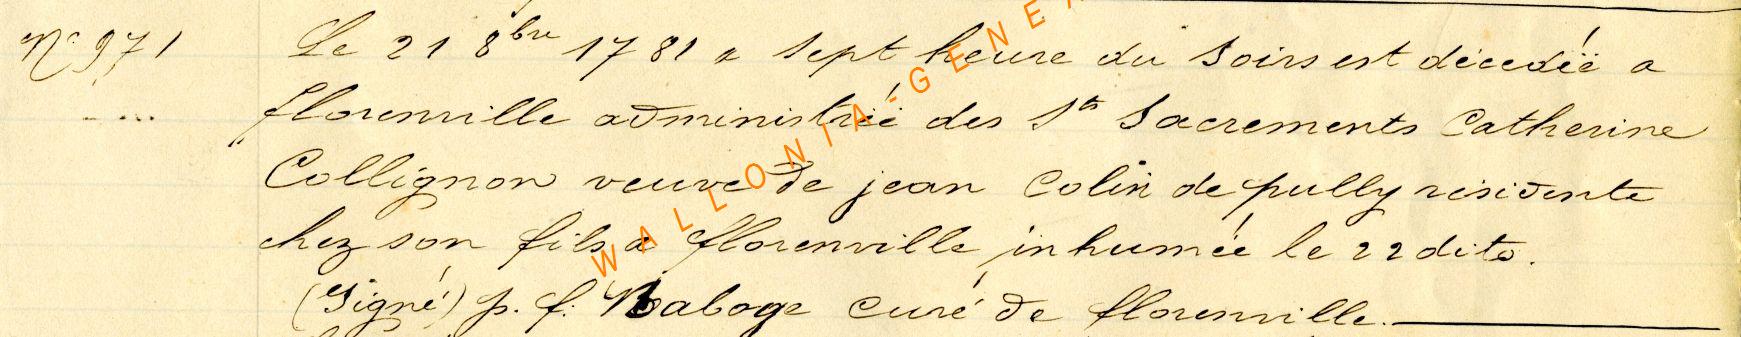 N° 971 Le 21 8bre 1781 a sept heure du soirs est décedéë a
florenville administréë des Sts Sacrements Catherine
Collignon veuve de jean Colin de pully residente
chez son fils a florenville inhumée le 22 dito.
(Signé) p. f. Naboge curé de florenville.
WALLONIA-GENE